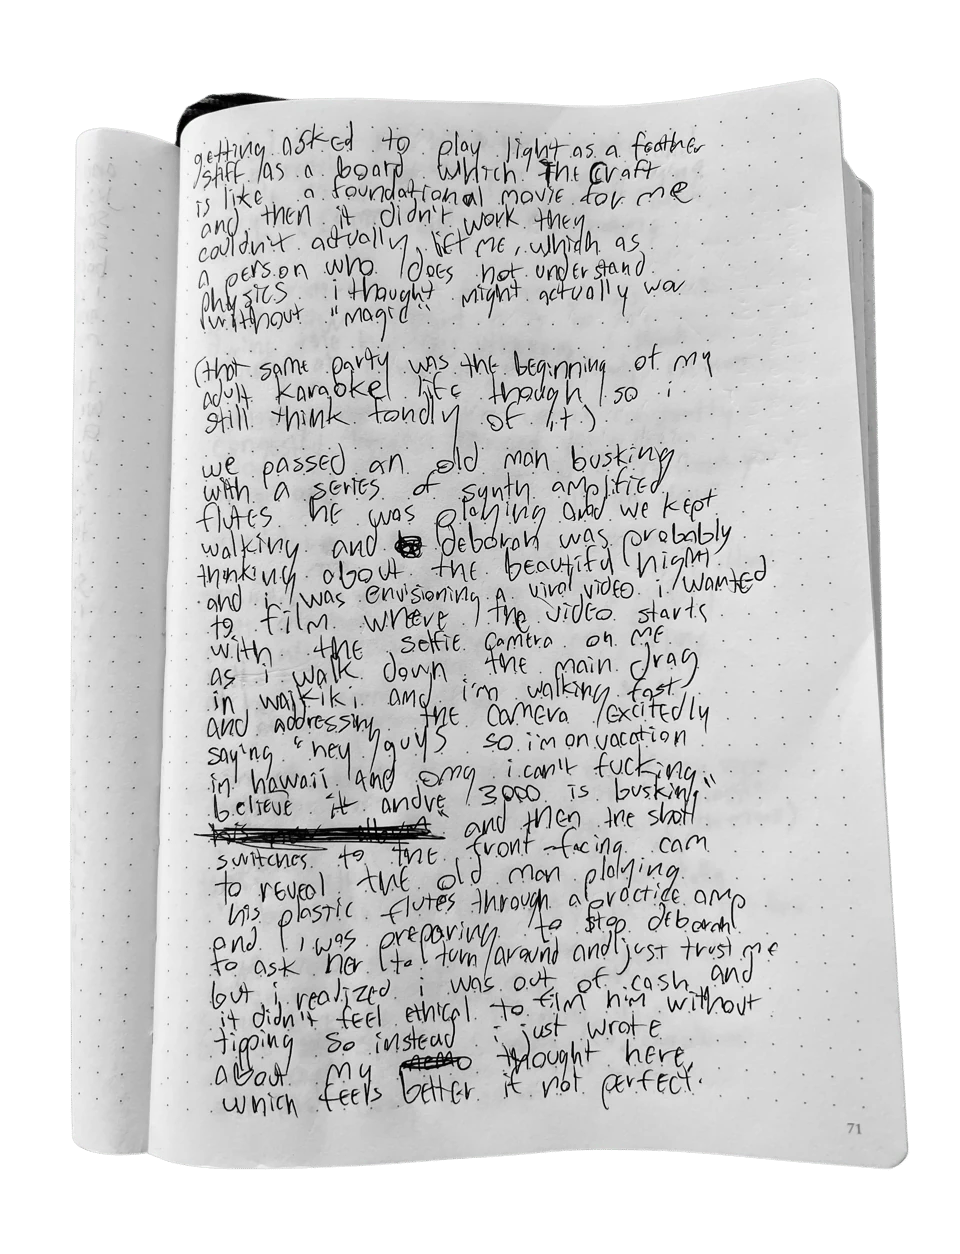 getting asked to play light as a feather
stiff as a board which The Craft
is like a foundational movie for me
and then it didn't work they
couldn't actually lift me, which as
a person who does not understand
physics i thought might actually wo
without "magic"
(that same party was the beginning of my
adult karaoke life though so i
still think fondly of it)
we passed an old man busking
with a series of synth amplified
flutes he was playing and we kept
walking and deborah was probably
thinking about the beautiful night
and i was envisioning a viral video i wanted
to film where the video starts
with the selfie camera on me
as i walk down the main drag
in waikiki and i'm walking fast
and addressing the camera excitedly
saying "hey guys so i'm on vacation
in hawaii and omg i can't fucking
believe it andre 3000 is busking"
and then the shot
switches to the front-facing cam
to reveal the old man playing
his plastic flutes through a practice amp
and i was preparing to stop deborah
to ask her to turn around and just trust me
but i realized i was out of cash and
it didn't feel ethical to film him without
tipping so instead i just wrote
about my thought here,
which feels better if not perfect.
71